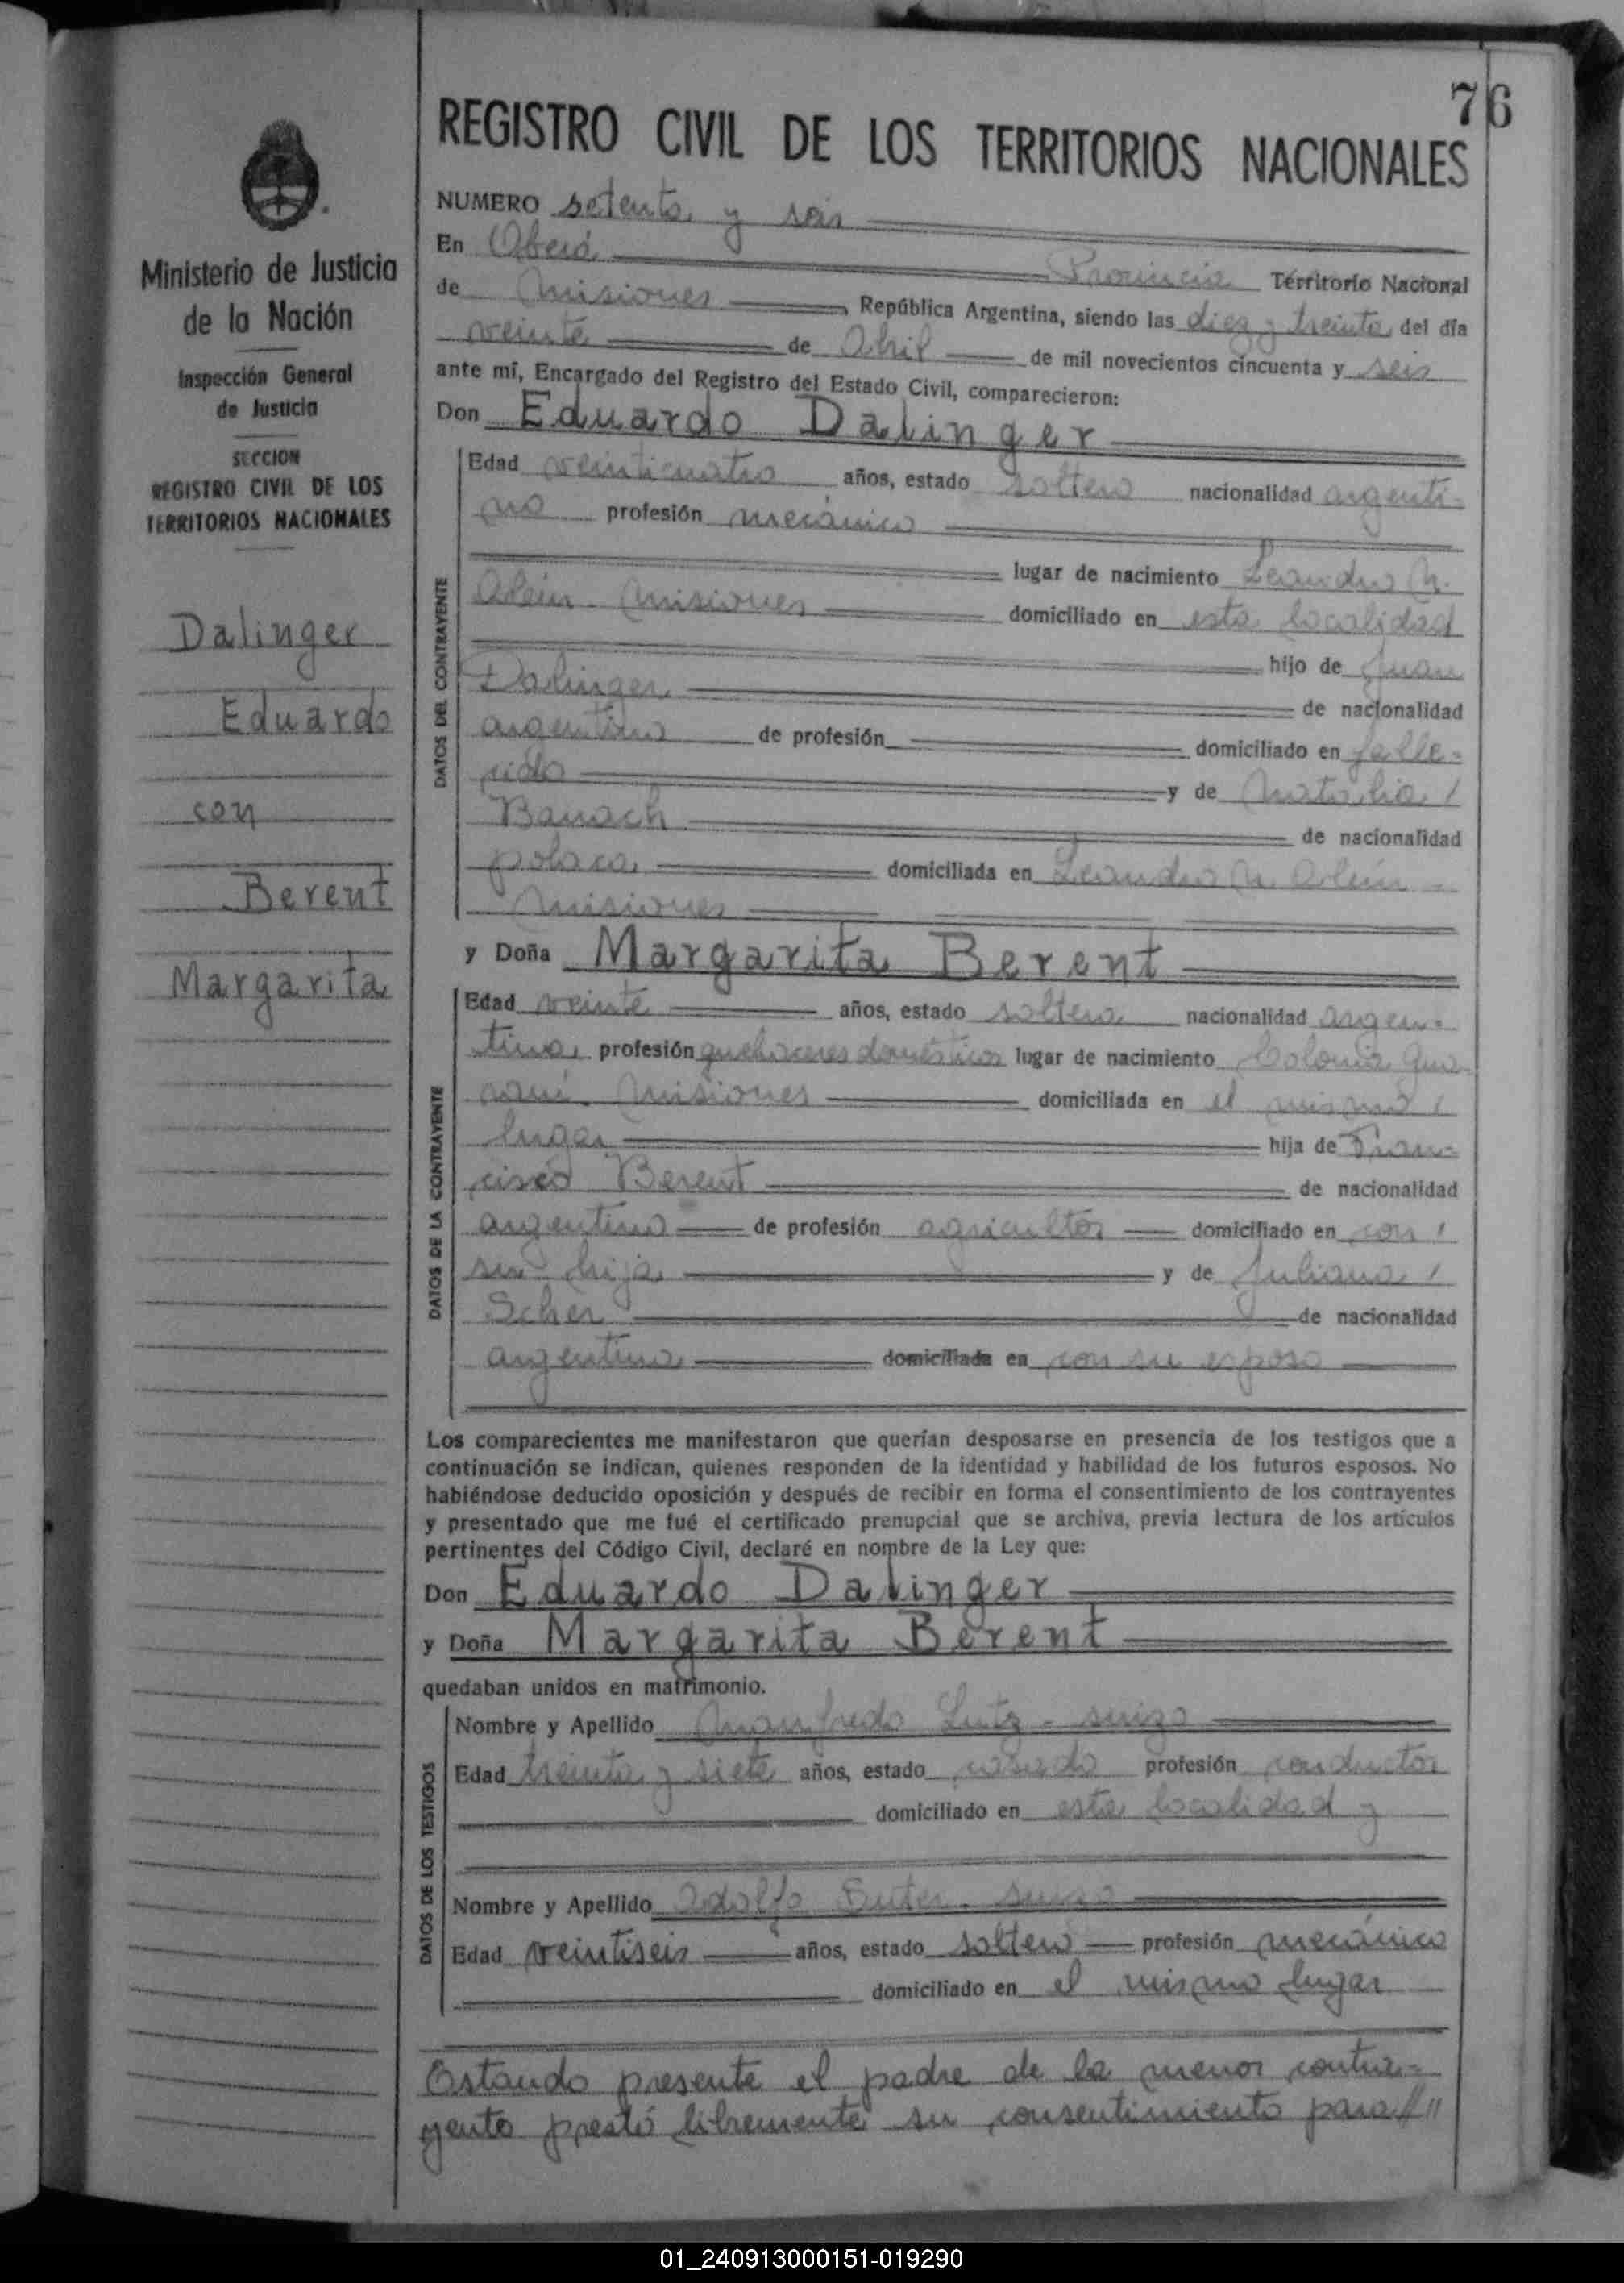 76
REGISTRO CIVIL DE LOS TERRITORIOS NACIONALES
Ministerio de Justicia
de la Nación
Inspección General
de Justicia
SECCION
REGISTRO CIVIL DE LOS
TERRITORIOS NACIONALES
Dalinger
Eduardo
con
Berent
Margarita
NUMERO setenta y seis
En Oberá Provincia Territorio Nacional
de Misiones República Argentina, siendo las diez y treinta del día
veinte de Abril de mil novecientos cincuenta y seis
ante mí, Encargado del Registro del Estado Civil, comparecieron:
Don Eduardo Dalinger
DATOS DEL CONTRAYENTE
Edad veinticuatro años, estado soltero nacionalidad argenti-
no profesión mecánico
lugar de nacimiento Leandro N.
Alem - Misiones domiciliado en esta localidad
hijo de Juan
Dalinger de nacionalidad
argentino de profesión domiciliado en falle-
cido y de Natalia /
Banach de nacionalidad
polaca domiciliada en Leandro N. Alem -
Misiones
y Doña Margarita Berent
DATOS DE LA CONTRAYENTE
Edad veinte años, estado soltera nacionalidad argen-
tina profesión quehaceres domésticos lugar de nacimiento Colonia Gua-
raní - Misiones domiciliada en el mismo /
lugar hija de Fran-
cisco Berent de nacionalidad
argentino de profesión agricultor domiciliado en con /
su hija y de Juliana /
Scher de nacionalidad
argentina domiciliada en con su esposo
Los comparecientes me manifestaron que querían desposarse en presencia de los testigos que a
continuación se indican, quienes responden de la identidad y habilidad de los futuros esposos. No
habiéndose deducido oposición y después de recibir en forma el consentimiento de los contrayentes
y presentado que me fué el certificado prenupcial que se archiva, previa lectura de los artículos
pertinentes del Código Civil, declaré en nombre de la Ley que:
Don Eduardo Dalinger
y Doña Margarita Berent
quedaban unidos en matrimonio.
DATOS DE LOS TESTIGOS
Nombre y Apellido Manfredo Lutz - suizo
Edad treinta y siete años, estado casado profesión conductor
domiciliado en esta localidad y
Nombre y Apellido Adolfo Suter - suizo
Edad veintiseis años, estado soltero profesión mecánico
domiciliado en el mismo lugar
Estando presente el padre de la menor contra-
yente prestó libremente su consentimiento para //"
01_240913000151-019290